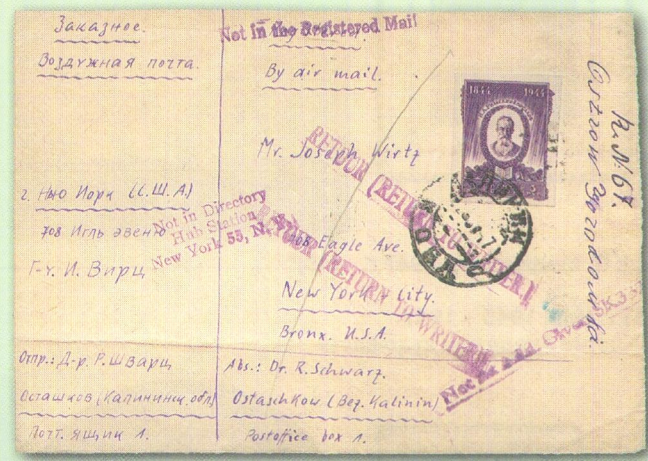 Заказное.
Воздужная почта.
г. Нью Йорк (С.Ш.А)
708 Игль эвеню
Г-ч. И. Вирц
Отпр.: Д-р. Р. Шварц
Осташков (Калининск. обл)
Почт. ящик 1.
Not in the Registered Mail
By air mail.
Mr. Joseph Wirtz
708 Eagle Ave.
New York City.
Bronx. U.S.A.
Abs.: Dr. R. Schwarz.
Ostaschkow (Bez. Kalinin)
Postoffice box 1.
Not in Directory
Hub Station
New York 55, N.Y.
RETOUR (RETURN TO SENDER)
RETOUR (RETURN TO WRITER)
Not at Add. Given
1844 1944
K.N 67.
Ostrow